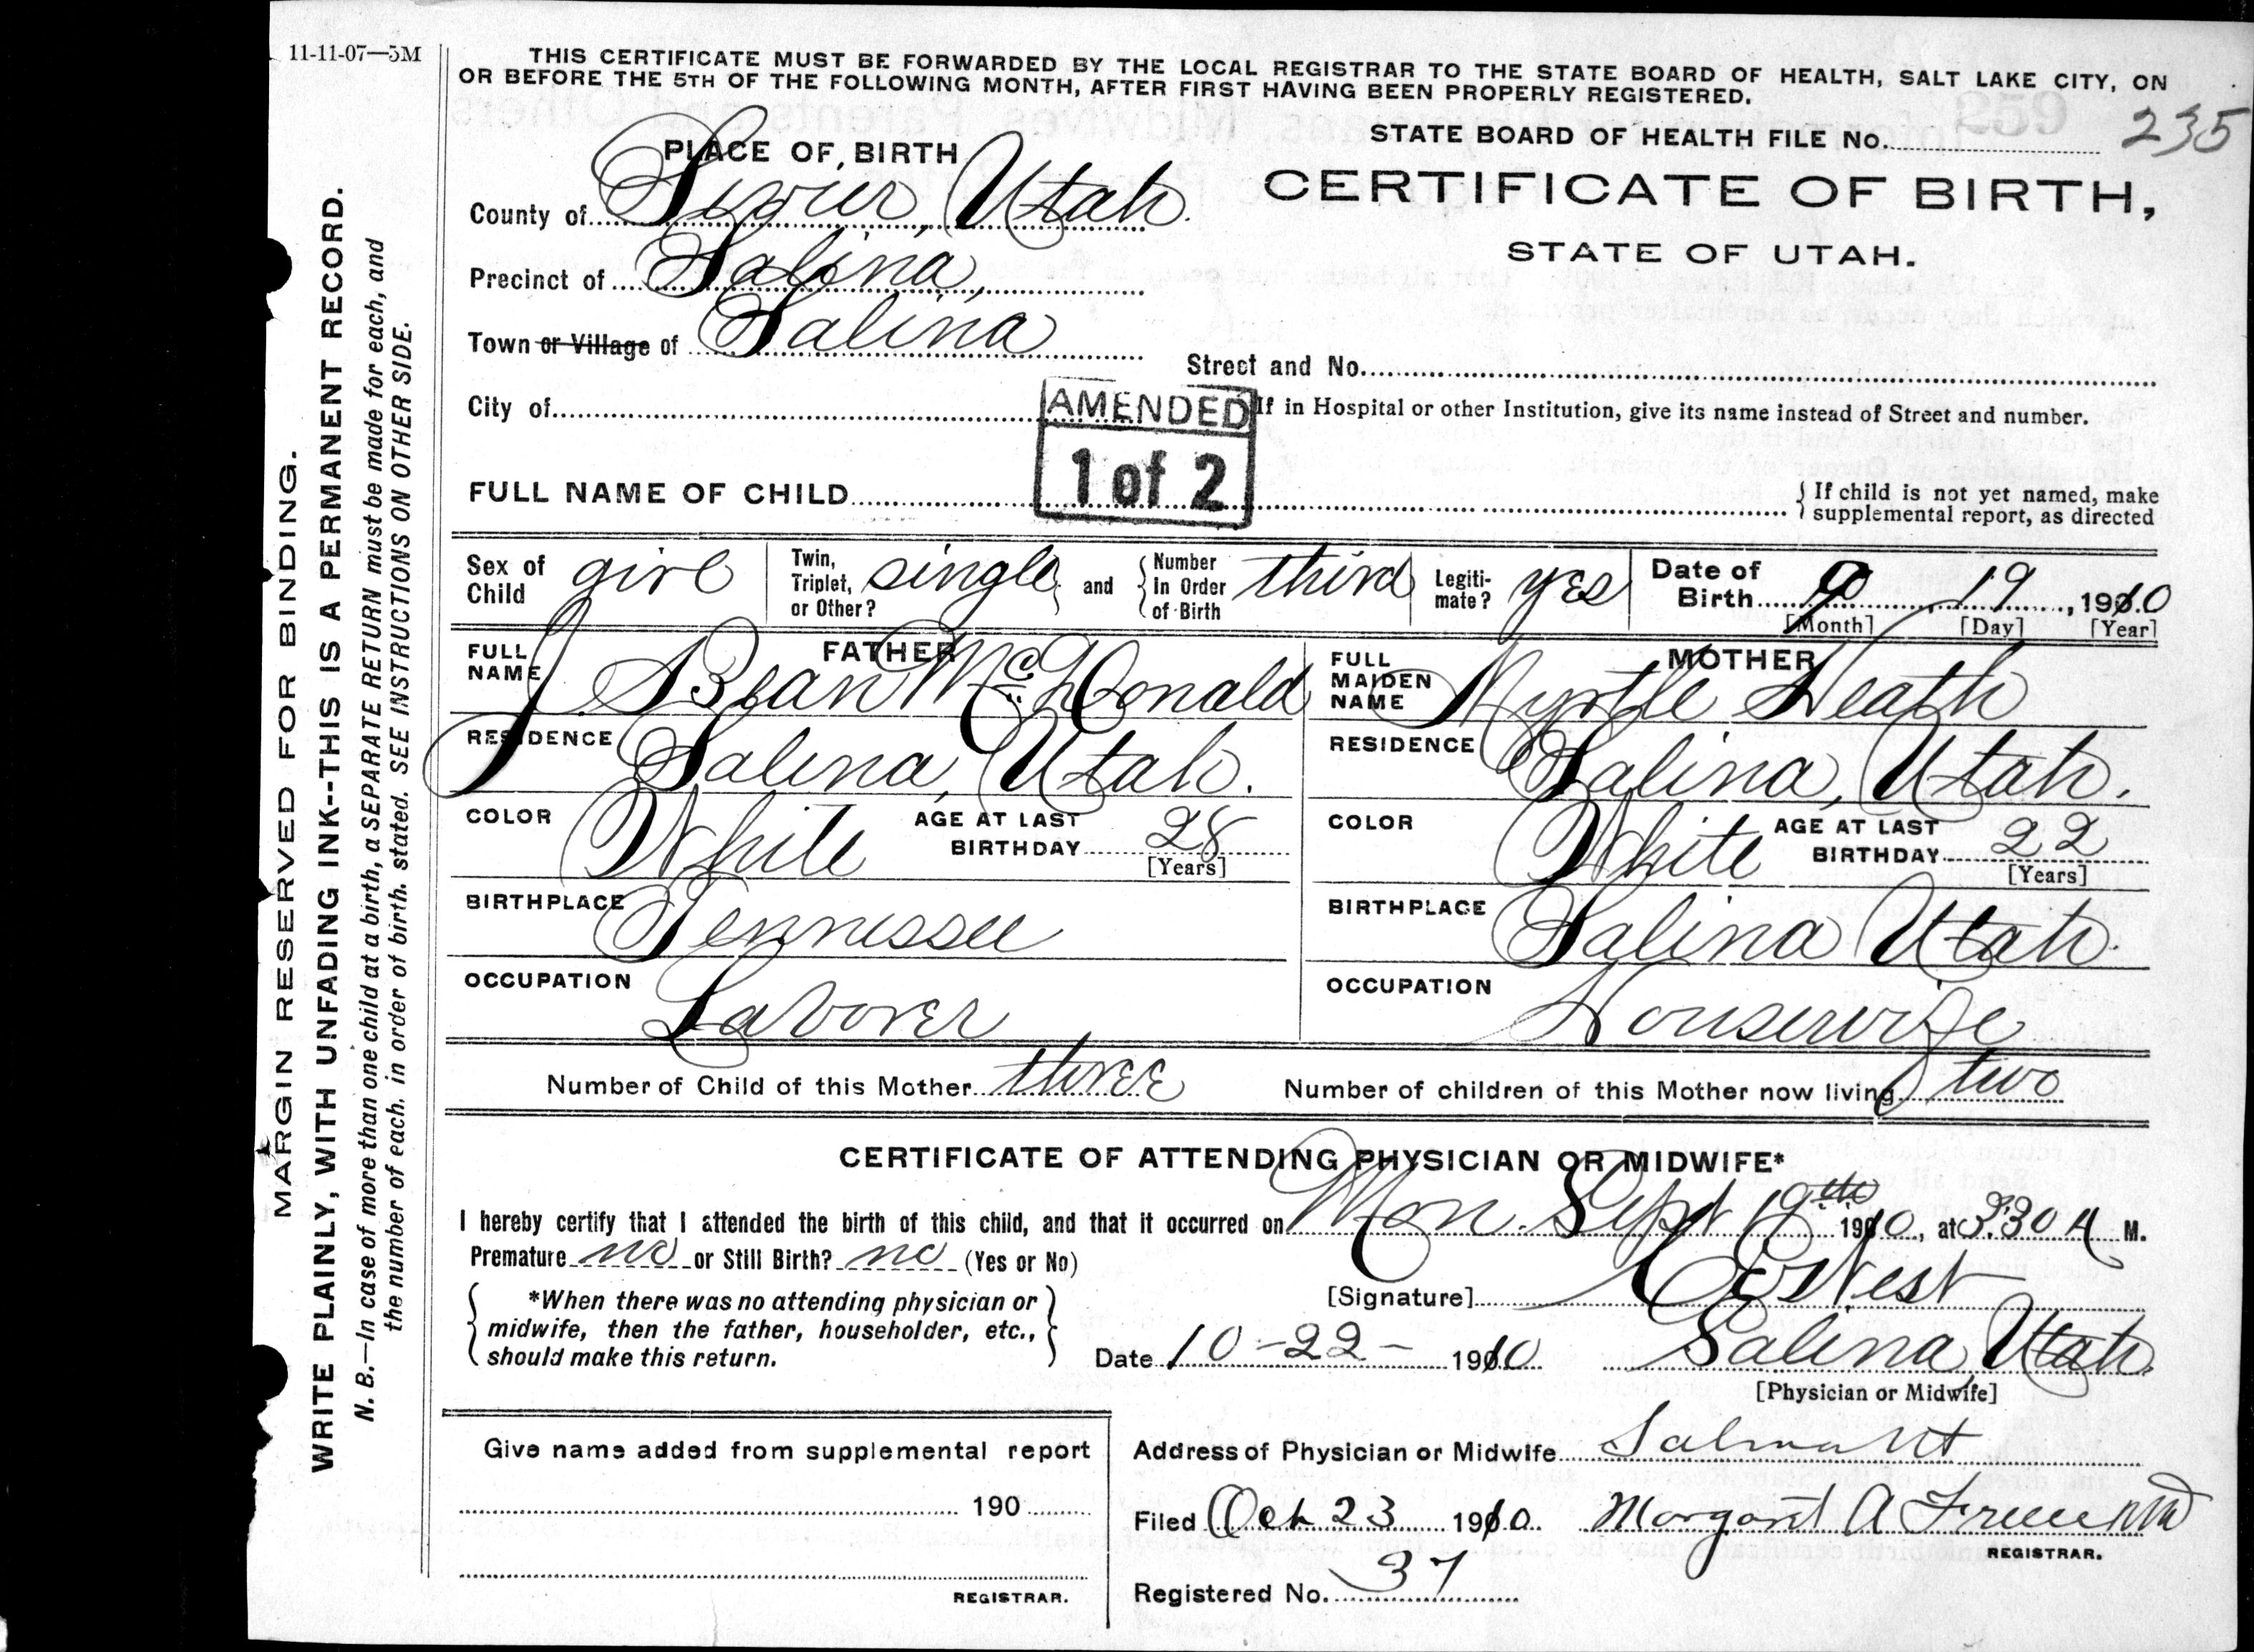 11-11-07—5M
THIS CERTIFICATE MUST BE FORWARDED BY THE LOCAL REGISTRAR TO THE STATE BOARD OF HEALTH, SALT LAKE CITY, ON
OR BEFORE THE 5TH OF THE FOLLOWING MONTH, AFTER FIRST HAVING BEEN PROPERLY REGISTERED.
STATE BOARD OF HEALTH FILE No. 235
CERTIFICATE OF BIRTH,
STATE OF UTAH.
PLACE OF BIRTH
County of Sevier, Utah.
Precinct of Salina,
Town or Village of Salina
Street and No.
City of
AMENDED
1 of 2
If in Hospital or other Institution, give its name instead of Street and number.
FULL NAME OF CHILD
{ If child is not yet named, make
supplemental report, as directed
Sex of Child girl
Twin, Triplet, or Other? single and { Number In Order of Birth third
Legiti-mate? yes
Date of Birth 9 19, 1910
[Month] [Day] [Year]
FATHER
FULL NAME J. Bean McDonald
RESIDENCE Salina, Utah.
COLOR White AGE AT LAST BIRTHDAY 28
[Years]
BIRTHPLACE Tennessee
OCCUPATION Laborer
MOTHER
FULL MAIDEN NAME Myrtle Heath
RESIDENCE Salina, Utah.
COLOR White AGE AT LAST BIRTHDAY 22
[Years]
BIRTHPLACE Salina Utah.
OCCUPATION Housewife
Number of Child of this Mother three Number of children of this Mother now living two
CERTIFICATE OF ATTENDING PHYSICIAN OR MIDWIFE*
I hereby certify that I attended the birth of this child, and that it occurred on Mon. Sept 19th 1910, at 3:30 A M.
Premature no or Still Birth? no (Yes or No)
*When there was no attending physician or
midwife, then the father, householder, etc.,
should make this return.
[Signature] West
Date 10-22- 1910 Salina Utah.
[Physician or Midwife]
Give name added from supplemental report
190
REGISTRAR.
Address of Physician or Midwife Salina Ut
Filed Oct 23 1910 Margaret A
REGISTRAR.
Registered No. 37
MARGIN RESERVED FOR BINDING.
WRITE PLAINLY, WITH UNFADING INK--THIS IS A PERMANENT RECORD.
N. B.—In case of more than one child at a birth, a SEPARATE RETURN must be made for each, and
the number of each, in order of birth, stated. SEE INSTRUCTIONS ON OTHER SIDE.